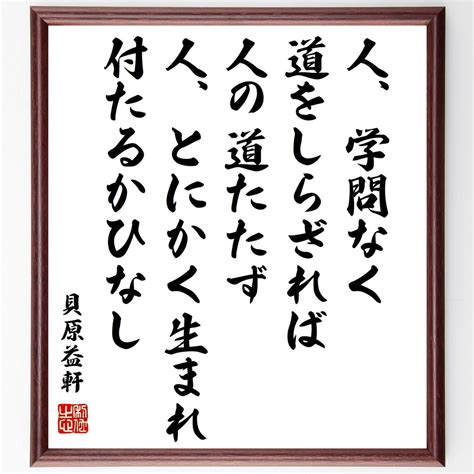 人、学問なく
道をしらざれば
人の道たたず
人、とにかく生まれ
付たるかひなし
貝原益軒